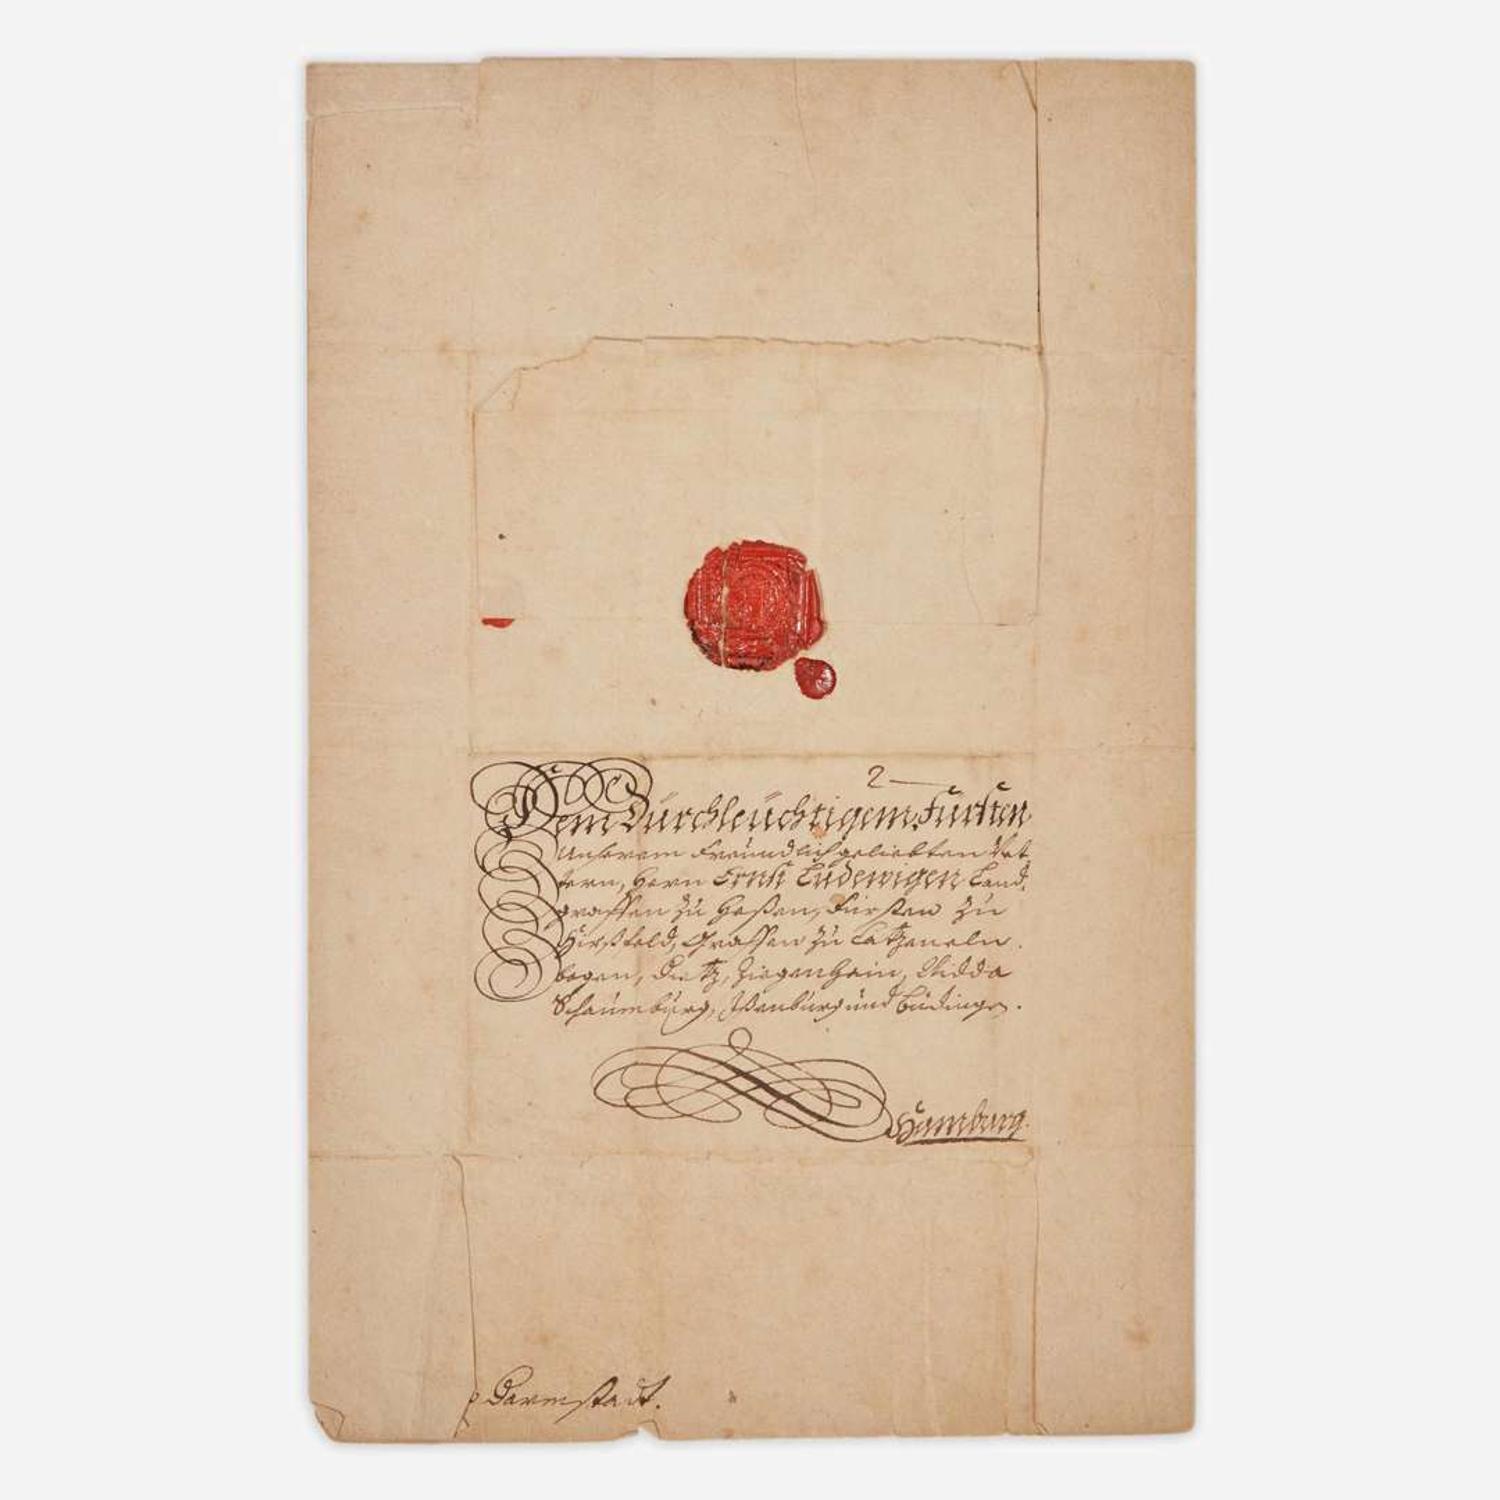 2
Dem Durchleüchtigem Fürsten
Unserem Freündlich geliebten Vet
tern, Herrn Ernst Ludewigen Land,
graffen zu Heßen, Fürsten zu
Hirßfeld, Graffen zu Catzeneln
bogen, Dietz, Ziegenhain, Nidda
Schaumburg, Ysenburg und Büdingen.
Hamburg.
p Darmstadt.